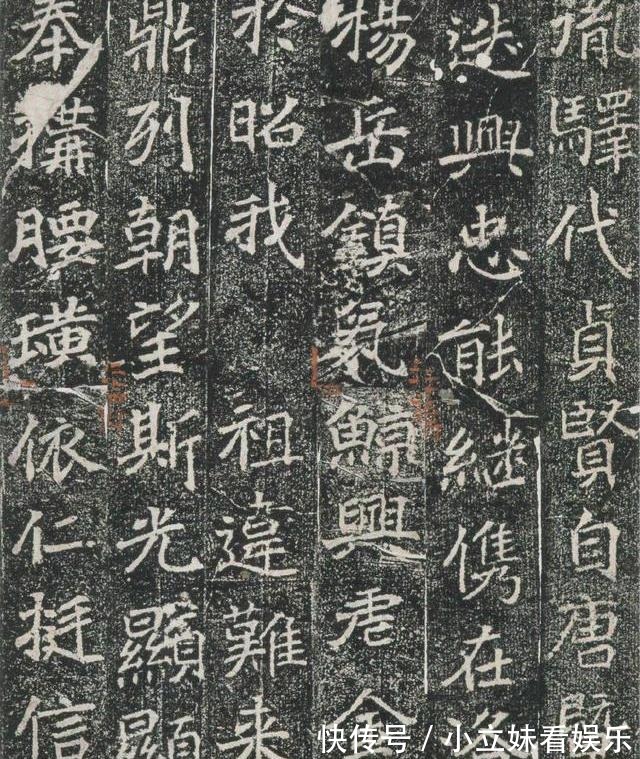 胤驛代貞賢自唐
迭興忠能繼儁在
楊岳鎮氣鯨興
於昭我 祖違難来
鼎列朝望斯光顯顯
奉構腰璜依仁挺信
快传号/小立妹看娱乐